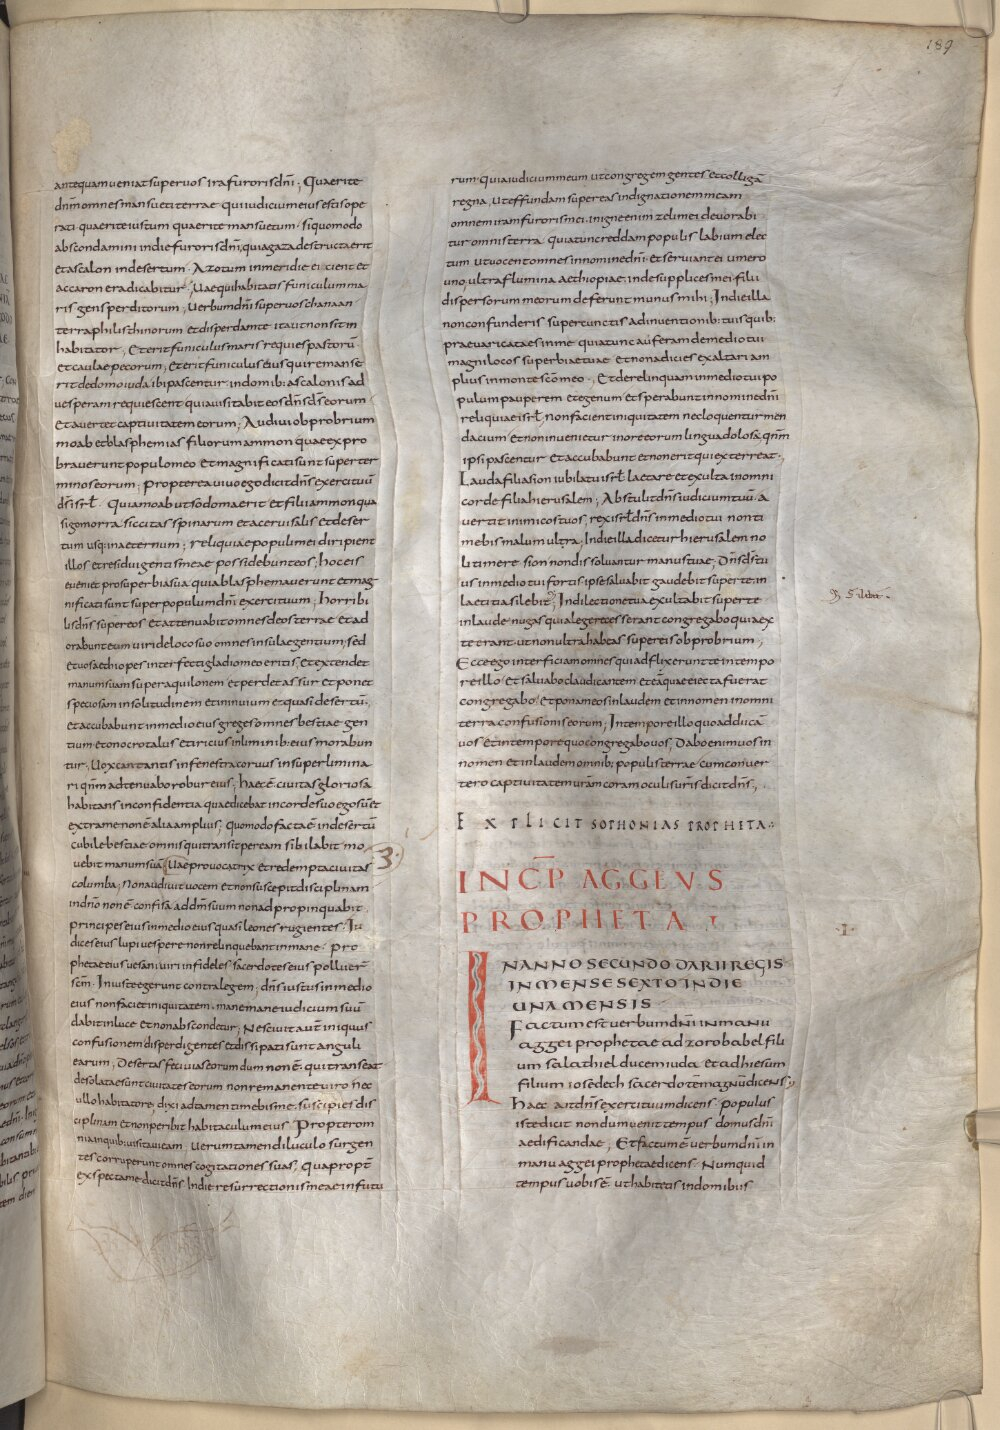 189
antequam ueniat super uos ira furoris dn̄i ; Quaerite
dn̄m omnes mansueti terrae qui iudicium eius estis ope
rati quaerite iustum quaerite mansuetum · si quomodo
abscondamini in die furoris dn̄i , quia gaza destructa erit
et ascalon in desertum · Azotum in meridie eicient et
accaron eradicabitur ; Uae qui habitatis funiculum ma
ris gens perditorum ; Uerbum dn̄i super uos chanaan
terra philisthinorum et disperdam te ita ut non sit in
habitator , Et erit funiculus maris requies pastorū
et caulae pecorum ; et erit funiculus eius qui remanse
rit de domo iuda ibi pascentur · in domib: ascalonis ad
uesperam requiescent quia uisitabit eos dn̄s d̄s eorum ·
Et auertet captiuitatem eorum ; Audiui obprobrium
moab et blasphemias filiorum ammon quae expro
brauerunt populo meo et magnificati sunt super ter
minos eorum ; propterea uiuo ego dicit dn̄s exercituū
d̄s isrł · Quia moab ut sodoma erit et filii ammon qua
si gomorra siccitas spinarum et acerui salis et deser
tum usq; in aeternum ; reliquiae populi mei diripient
illos et residui gentis meae possidebunt eos ; hoc eis
eueniet pro superbia sua quia blasphemauerunt et mag
nificati sunt super populum dn̄i exercituum ; horribi
lis dn̄s super eos et attenuabit omnes deos terrae et ad
orabunt eum uiri de loco suo omnes insulae gentium ; sed
et uos aethiopes interfecti gladio meo eritis , et extendet
manum suam super aquilonem et perdet assur et ponet
speciosam in solitudinem et in inuium et quasi desertū ;
et accubabunt in medio eius greges omnes bestiae gen
tium et onocrotalus et iricius in liminib: eius morabun
tur ; Uox cantantis in fenestra coruus in superlimina
ri qn̄m adtenuabo robur eius ; haec ē ciuitas gloriosa
habitans in confidentia quae dicebat in corde suo ego sū et
extra me non ē alia amplius ; quomodo facta ē in desertū
cubile bestiae · omnis qui transit per eam sibilabit mo
uebit manum sua ; Uae prouocatrix et redempta ciuitas
3·
columba ; Non audiuit uocem et non suscepit disciplinam
in dn̄o non ē confisa ad dm̄ suum non adpropinquabit ·
principes eius in medio eius quasi leones rugientes · Iu
dices eius lupi uespere non relinquebant in mane · pro
phetae eius uesani uiri infideles sacerdotes eius polluer̄
sc̄m · Iniuste egerunt contra legem ; dn̄s iustus in medio
eius non faciet iniquitatem · mane mane iudicium suū
dabit in luce et non abscondetur ; Nesciuit aut̄ iniquus
confusionem disperdi gentes et dissipati sunt anguli
earum ; Desertas feci uias eorum dum non ē · qui transeat
desolatae sunt ciuitates eorum non remanente uiro nec
ullo habitatore ; dixi adtamen timebis me · suscipies dis
ciplinam et non peribit habitaculum eius · Propter om
nia in quib: uisitaui eam · uerumtamen diluculo surgen
tes corruperunt omnes cogitationes suas , Quapropt̄
exspecta me dicit dn̄s In die resurrectionis meae in futu
rum · Quia iudicium meum ut congregem gentes et colligā
regna , Ut effundam super eas indignationem meam
omnem iram furoris mei · in igne enim zeli mei deuorabi
tur omnis terra quia tunc reddam populis labium elec
tum ut uocent omnes in nomine dn̄i · et seruiant ei umero
uno , ultra flumina aethiopiae , inde supplices mei · filii
dispersorum meorum deferunt munus mihi ; In die illa
non confunderis super cunctis adinuentionib: tuis quib:
praeuaricata es in me quia tunc auferam de medio tui
magnilocos superbiae tuae et non adicies exaltari am
plius in monte sc̄o meo · , Et derelinquam in medio tui po
pulum pauperem et egenum et sperabunt in nomine dn̄i
reliquiae isrł , non facient iniquitatem nec loquentur men
dacium et non inuenietur in ore eorum lingua dolosa qn̄m
ipsi pascentur et accubabunt et non erit qui exterreat · ,
Lauda filia sion iubilatu isrł laetare et exulta in omni
corde filia hierusalem ; Abstulit dn̄s iudicium tuū · a
uertit inimicos tuos , rex isrł dn̄s in medio tui non ti
mebis malum ultra ; In die illa dicetur hierusalem no
li timere sion non dissoluantur manus tuae ; Dn̄s d̄s tu
us in medio tui fortis ipse saluabit gaudebit super te in
laetitia silebit ; In dilectione tua exultabit super te
silebit ·
in laude · nugas qui a lege recesserant congregabo quia ex
te erant · ut non ultra habeas super eis obprobrium ;
Ecce ego interficiam omnes qui adflixerunt te in tempo
re illo · et saluabo claudicantem et eā quae eiecta fuerat
congregabo · et ponam eos in laudem et in nomen in omni
terra confusionis eorum ; In tempore illo quo adducā
uos et in tempore quo congregabo uos , Dabo enim uos in
nomen et in laudem omnib; populis terrae cum conuer
tero captiuitatem uram coram oculis uris dicit dn̄s ; ,
EXPLICIT SOPHONIAS PROPHETA :
INCP̄ AGGEVS
PROPHETA I
·I·
IN ANNO SECUNDO DARII REGIS
IN MENSE SEXTO IN DIE
UNA MENSIS
Factum est uerbum dn̄i in manu
aggei prophetae ad zorobabel fili
um salathiel ducem iuda et ad hiesum
filium iosedech sacerdotem magnū dicens ;
Haec ait dn̄s exercituum dicens · populus
iste dicit nondum uenit tempus domus dn̄i
aedificandae ; Et factum ē uerbum dn̄i in
manu aggei prophetae dicens · Numquid
tempus uobis ē · ut habitetis in domibus